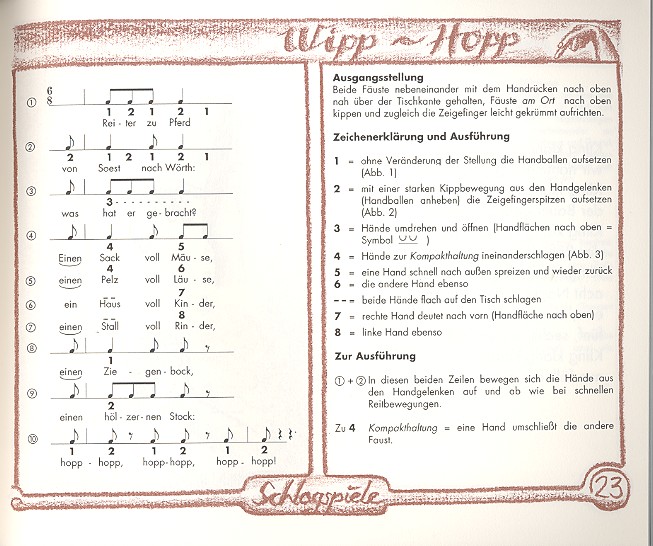 Wipp ~ Hopp
① 6/8
1 2 1 2 1
Rei - ter zu Pferd
②
2 1 2 1 2 1
von Soest nach Wörth:
③
3 - - - - - - - - - -
was hat er ge - bracht?
④
4 5
Einen Sack voll Mäu - se,
4 6
⑤ einen Pelz voll Läu - se,
-- 7
⑥ ein Haus voll Kin - der,
-- 8
⑦ einen Stall voll Rin - der,
⑧
1
einen Zie - gen - bock,
⑨
2
einen höl - zer - nen Stock:
⑩
1 2 1 2 1 2
hopp - hopp, hopp - hopp, hopp - hopp!
Ausgangsstellung
Beide Fäuste nebeneinander mit dem Handrücken nach oben
nah über der Tischkante gehalten, Fäuste am Ort nach oben
kippen und zugleich die Zeigefinger leicht gekrümmt aufrichten.
Zeichenerklärung und Ausführung
1 = ohne Veränderung der Stellung die Handballen aufsetzen
(Abb. 1)
2 = mit einer starken Kippbewegung aus den Handgelenken
(Handballen anheben) die Zeigefingerspitzen aufsetzen
(Abb. 2)
3 = Hände umdrehen und öffnen (Handflächen nach oben =
Symbol )
4 = Hände zur Kompakthaltung ineinanderschlagen (Abb. 3)
5 = eine Hand schnell nach außen spreizen und wieder zurück
6 = die andere Hand ebenso
- - - beide Hände flach auf den Tisch schlagen
7 = rechte Hand deutet nach vorn (Handfläche nach oben)
8 = linke Hand ebenso
Zur Ausführung
① + ② In diesen beiden Zeilen bewegen sich die Hände aus
den Handgelenken auf und ab wie bei schnellen
Reitbewegungen.
Zu 4 Kompakthaltung = eine Hand umschließt die andere
Faust.
Schlagspiele
23